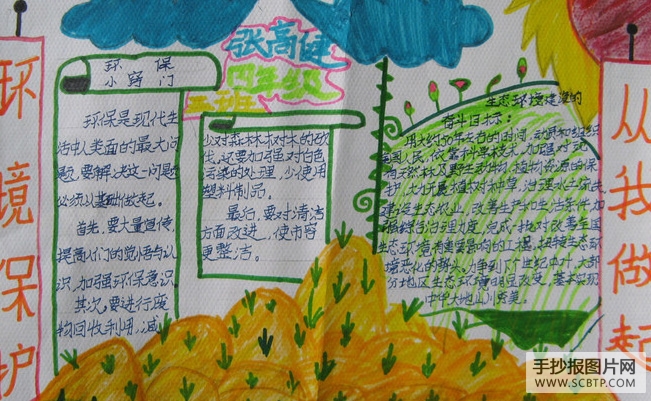 环境保护
张高健
四年级
五班
环保
小窍门
环保是现代生
活中人类面的最大问
题,要解决这一问题
必须从基础做起。
首先,要大量宣传,
提高人们的觉悟与认
识,加强环保意识。
其次,要进行废
物回收利用,减
少对森林树木的砍
伐,还要加强对白色
污染的处理,少使用
塑料制品。
最后,要对清洁
方面改进,使市容
更整洁。
生态环境建设的
奋斗目标:
用大约50年左右的时间,动员和组织
全国人民,依靠科学技术,加强对现
有天然林及野生动植物资源的保
护,大力开展植树种草,治理水土流失
建设生态农业,改善生产和生活条件,加
强综合治理力度,完成一批对改善全国
生态环境有重要影响的工程,扭转生态环
境恶化的势头。力争到下个世纪中叶,大部
分地区生态环境明显改变,基本实现
中华大地山川秀美。
从我做起
手抄报图片网
WWW.SCBTP.COM